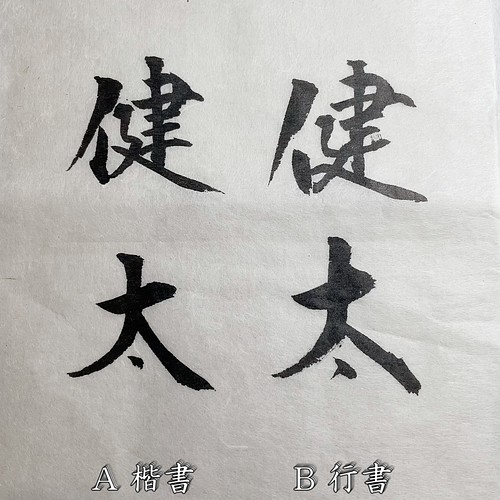 健 健
太 太
A 楷書 B 行書